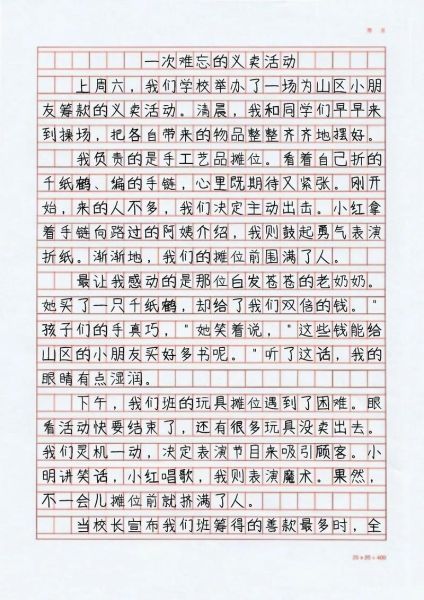 一次难忘的义卖活动
上周六，我们学校举办了一场为山区小朋
友筹款的义卖活动。清晨，我和同学们早早来
到操场，把各自带来的物品整整齐齐地摆好。
我负责的是手工艺品摊位。看着自己折的
千纸鹤、编的手链，心里既期待又紧张。刚开
始，来的人不多，我们决定主动出击。小红拿
着手链向路过的阿姨介绍，我则鼓起勇气表演
折纸。渐渐地，我们的摊位前围满了人。
最让我感动的是那位白发苍苍的老奶奶。
她买了一只千纸鹤，却给了我们双倍的钱。"
孩子们的手真巧，"她笑着说，"这些钱能给
山区的小朋友买好多书呢。"听了这话，我的
眼睛有点湿润。
下午，我们班的玩具摊位遇到了困难。眼
看活动快要结束了，还有很多玩具没卖出去。
我们灵机一动，决定表演节目来吸引顾客。小
明讲笑话，小红唱歌，我则表演魔术。果然，
不一会儿摊位前就挤满了人。
当校长宣布我们班筹得的善款最多时，全